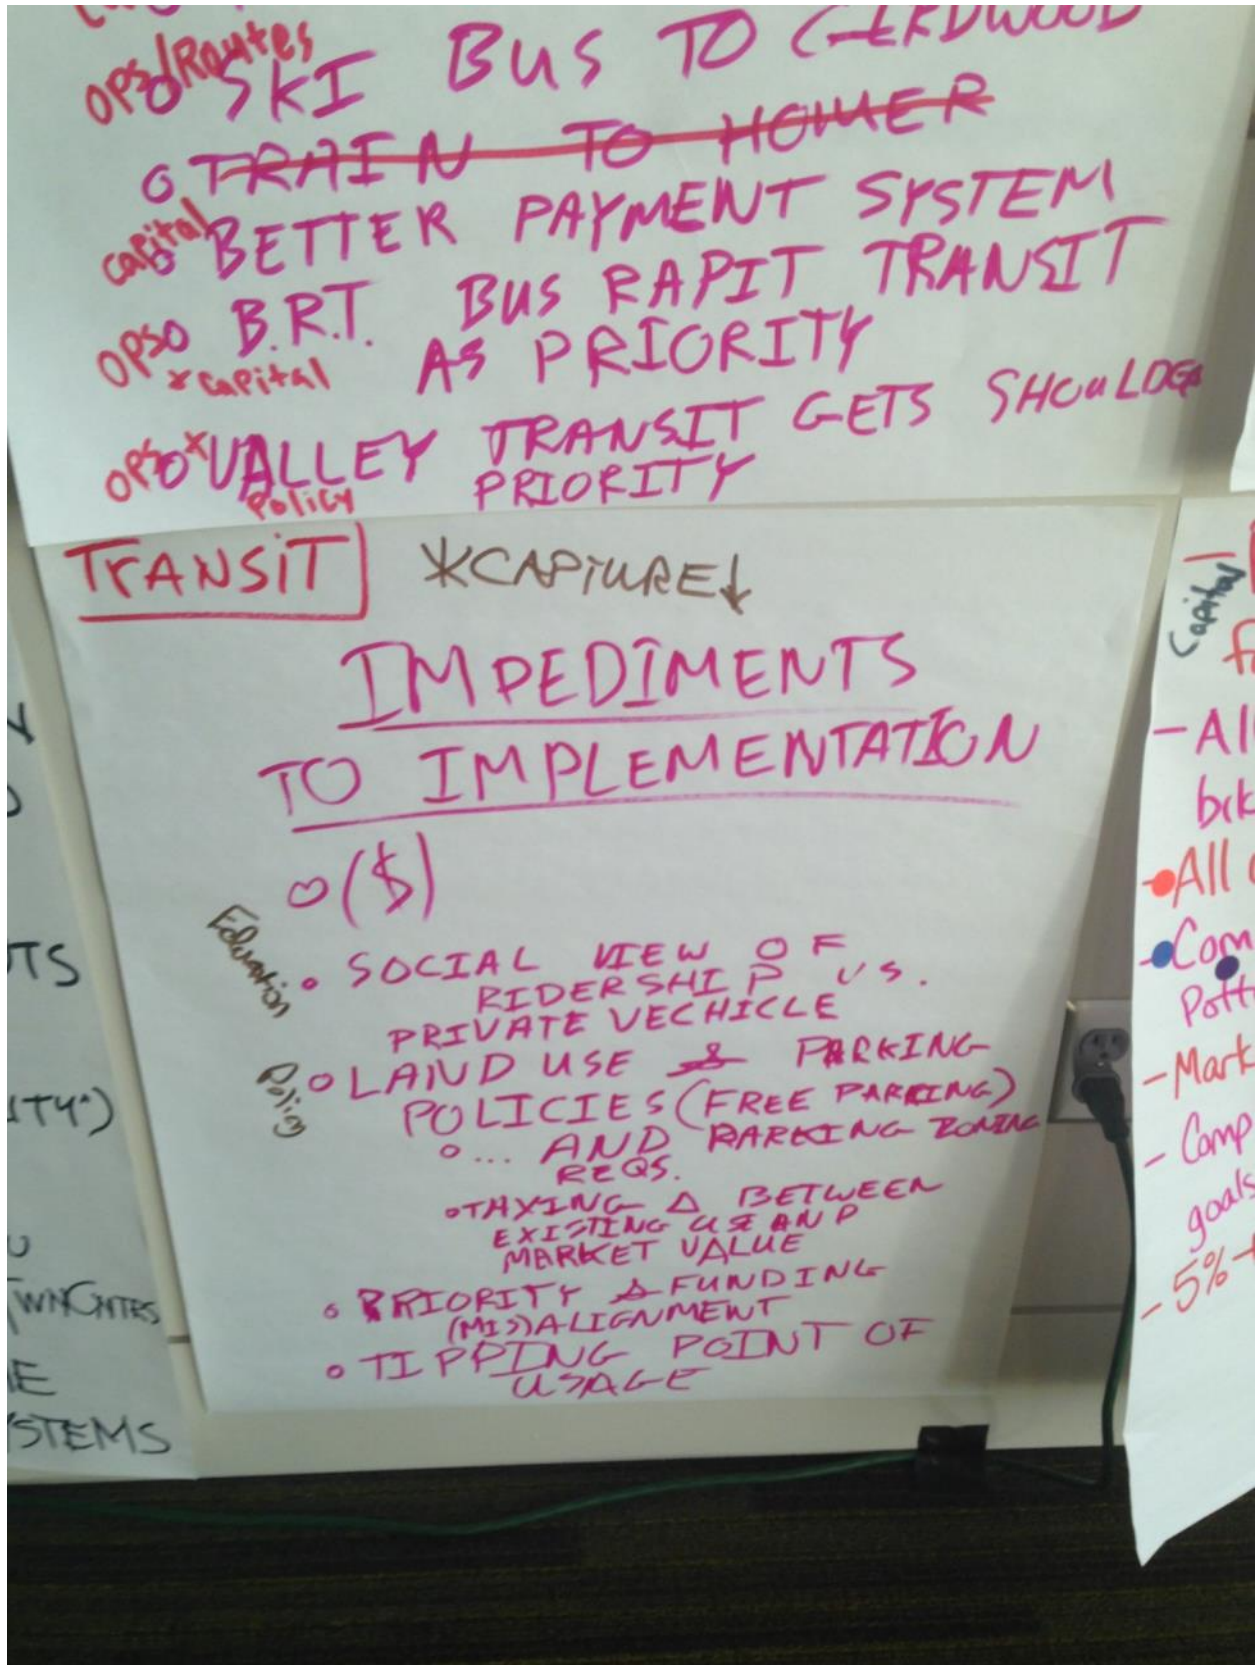 OPS/Routes
O SKI BUS TO GIRDWOOD
O TRAIN TO HOMER
capital
O BETTER PAYMENT SYSTEM
OPS O B.R.T. BUS RAPIT TRANSIT
x capital AS PRIORITY
OPS x O VALLEY TRANSIT GETS SHOULDER
Policy PRIORITY
TRANSIT *CAPTURE↓
IMPEDIMENTS
TO IMPLEMENTATION
O ($)
Education
O SOCIAL VIEW OF
RIDERSHIP VS.
PRIVATE VECHICLE
Policy
O LAND USE & PARKING
POLICIES (FREE PARKING)
O ... AND PARKING ZONING
REQS.
O TAXING Δ BETWEEN
EXISTING USE AND
MARKET VALUE
O PRIORITY & FUNDING
(MIS)ALIGNMENT
O TIPPING POINT OF
USAGE
TS
ITY")
TWNCNTRS
E
STEMS
Capital
- All
All
Com
- Mark
- Comp
goals
- 5%